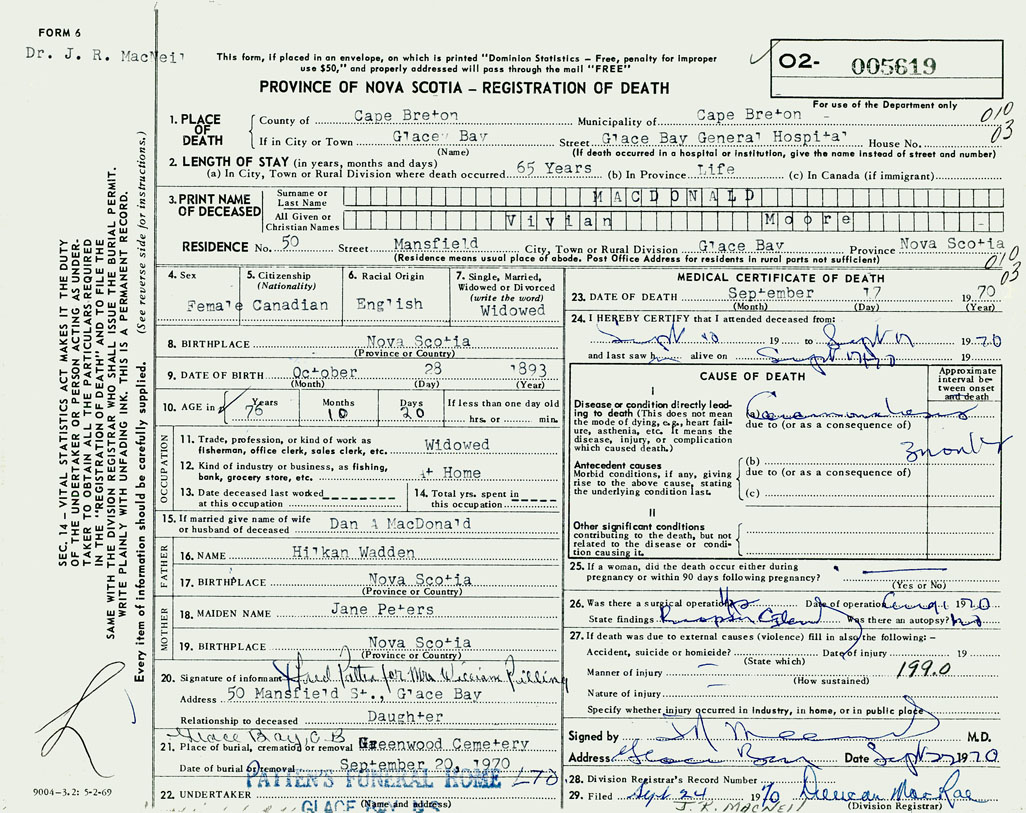 FORM 6
Dr. J. R. MacNeil
This form, if placed in an envelope, on which is printed "Dominion Statistics – Free, penalty for improper
use $50," and properly addressed will pass through the mail "FREE"
PROVINCE OF NOVA SCOTIA – REGISTRATION OF DEATH
O2- 005619
For use of the Department only
010
03
1. PLACE OF DEATH
County of Cape Breton Municipality of Cape Breton
If in City or Town Glace Bay Street Glace Bay General Hospital House No.
(Name) (If death occurred in a hospital or institution, give the name instead of street and number)
2. LENGTH OF STAY (in years, months and days)
(a) In City, Town or Rural Division where death occurred 65 Years (b) In Province Life (c) In Canada (if immigrant)
3. PRINT NAME OF DECEASED
Surname or Last Name MACDONALD
All Given or Christian Names Vivian Moore
RESIDENCE No. 50 Street Mansfield City, Town or Rural Division Glace Bay Province Nova Scotia
(Residence means usual place of abode. Post Office Address for residents in rural parts not sufficient)
010
03
4. Sex
Female
5. Citizenship
(Nationality)
Canadian
6. Racial Origin
English
7. Single, Married,
Widowed or Divorced
(write the word)
Widowed
8. BIRTHPLACE Nova Scotia
(Province or Country)
9. DATE OF BIRTH October 28 1893
(Month) (Day) (Year)
10. AGE in Years 76 Months 10 Days 20 If less than one day old
hrs. or min.
OCCUPATION
11. Trade, profession, or kind of work as
fisherman, office clerk, sales clerk, etc. Widowed
12. Kind of industry or business, as fishing,
bank, grocery store, etc. At Home
13. Date deceased last worked
at this occupation
14. Total yrs. spent in
this occupation
15. If married give name of wife
or husband of deceased Dan A MacDonald
FATHER
16. NAME Hilkan Wadden
17. BIRTHPLACE Nova Scotia
(Province or Country)
MOTHER
18. MAIDEN NAME Jane Peters
19. BIRTHPLACE Nova Scotia
(Province or Country)
20. Signature of informant Patten for Mrs William Pilling
Address 50 Mansfield St., Glace Bay
Relationship to deceased Daughter
Glace Bay, C.B
21. Place of burial, cremation or removal Greenwood Cemetery
Date of burial or removal September 20, 1970
PATTEN'S FUNERAL HOME LTD
22. UNDERTAKER
(Name and address)
GLACE BAY, N.S.
MEDICAL CERTIFICATE OF DEATH
23. DATE OF DEATH September 17 1970
(Month) (Day) (Year)
24. I HEREBY CERTIFY that I attended deceased from:
Sept 10 19 to Sept 17 1970
and last saw h alive on Sept 17 1970 19
CAUSE OF DEATH
Approximate
interval be-
tween onset
and death
I
Disease or condition directly lead-
ing to death (This does not mean
the mode of dying, e.g., heart fail-
ure, asthenia, etc. It means the
disease, injury, or complication
which caused death.)
(a) Carcinomatosis
due to (or as a consequence of)
3 months
Antecedent causes
Morbid conditions, if any, giving
rise to the above cause, stating
the underlying condition last.
(b)
due to (or as a consequence of)
(c)
II
Other significant conditions
contributing to the death, but not
related to the disease or condi-
tion causing it.
25. If a woman, did the death occur either during
pregnancy or within 90 days following pregnancy?
(Yes or No)
26. Was there a surgical operation? Yes Date of operation Aug 1 1970
State findings Was there an autopsy? No
27. If death was due to external causes (violence) fill in also the following: –
Accident, suicide or homicide? Date of injury 19
(State which)
Manner of injury 199.0
(How sustained)
Nature of injury
Specify whether injury occurred in industry, in home, or in public place
Signed by M.D.
Address Glace Bay Date Sept 22 1970
28. Division Registrar's Record Number
29. Filed Sept. 24 1970 Duncan MacRae
(Division Registrar)
J. R. MACNEIL
SEC. 14 – VITAL STATISTICS ACT MAKES IT THE DUTY
OF THE UNDERTAKER OR PERSON ACTING AS UNDER-
TAKER TO OBTAIN ALL THE PARTICULARS REQUIRED
IN THE "REGISTRATION OF DEATH" AND TO FILE THE
SAME WITH THE DIVISION REGISTRAR WHO SHALL ISSUE THE BURIAL PERMIT.
WRITE PLAINLY WITH UNFADING INK. THIS IS A PERMANENT RECORD.
Every item of information should be carefully supplied. (See reverse side for instructions.)
9004-3.2: 5-2-69